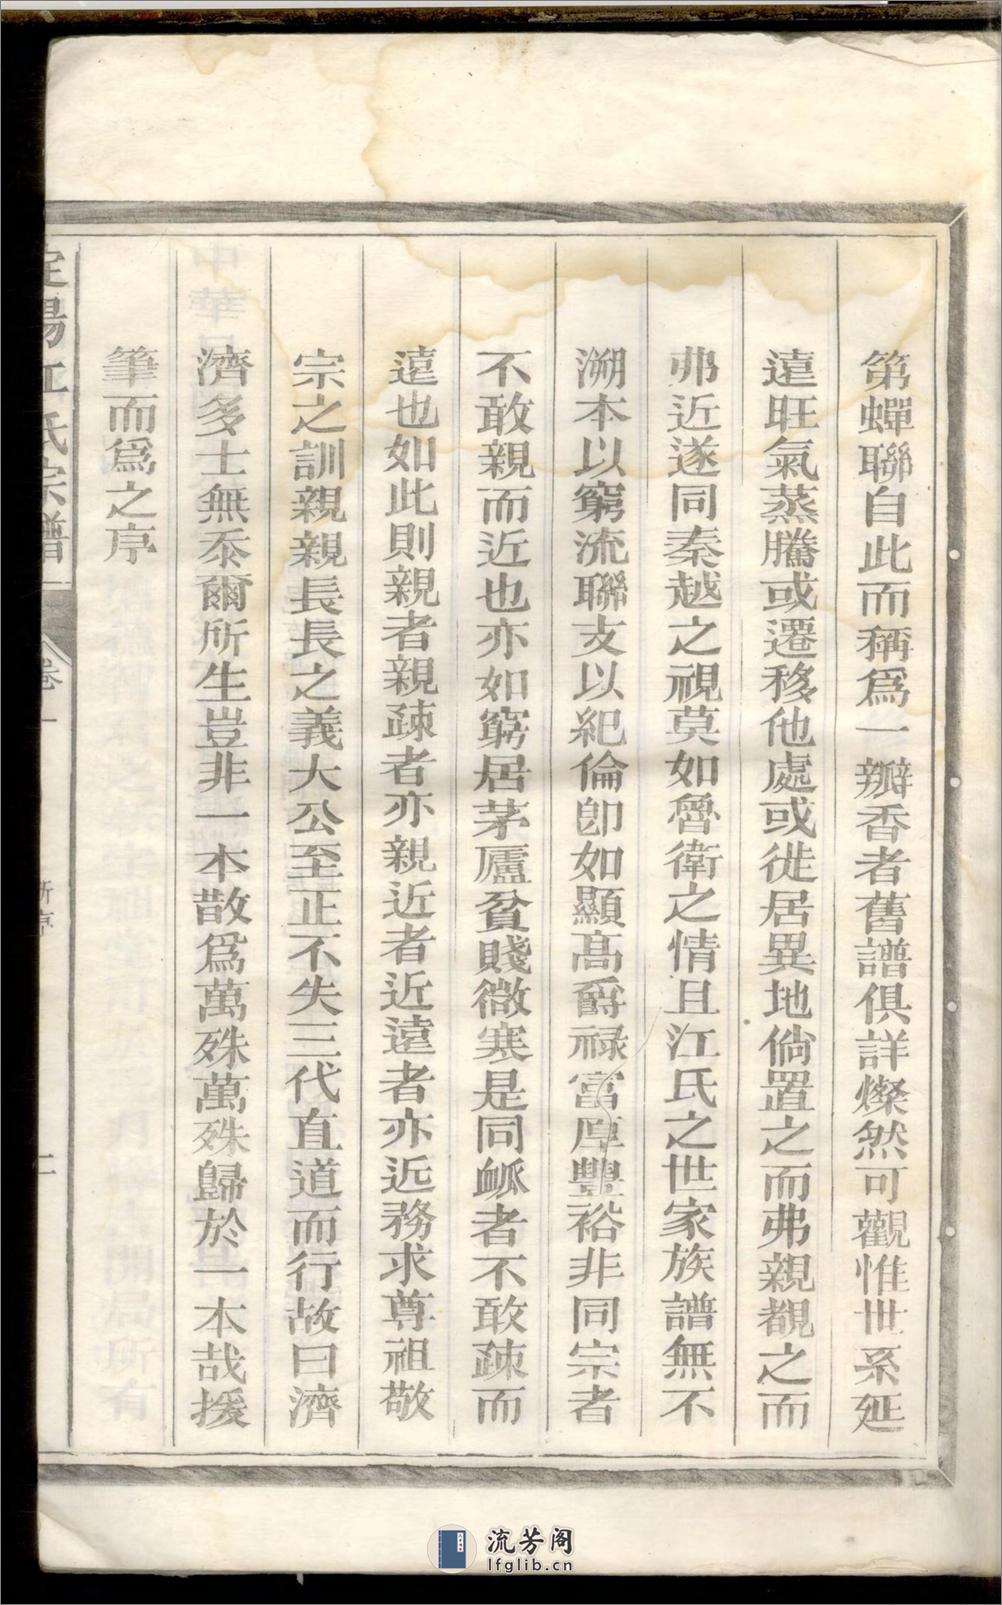 第蟬聯自此而稱爲一瓣香者舊譜俱詳燦然可觀惟世系延
遠旺氣蒸騰或遷移他處或徙居異地倘置之而弗親覩之而
弗近遂同秦越之視莫如魯衛之情且江氏之世家族譜無不
溯本以窮流聯支以紀倫卽如顯高爵祿富厚豐裕非同宗者
不敢親而近也亦如窮居茅廬貧賤微寒是同衇者不敢疎而
遠也如此則親者親疎者亦親近者近遠者亦近務求尊祖敬
宗之訓親親長長之義大公至正不失三代直道而行故曰濟
濟多士無忝爾所生豈非一本散爲萬殊萬殊歸於一本哉援
筆而爲之序
陽江氏宗譜
卷一
新序
二
流芳阁
lfglib.cn